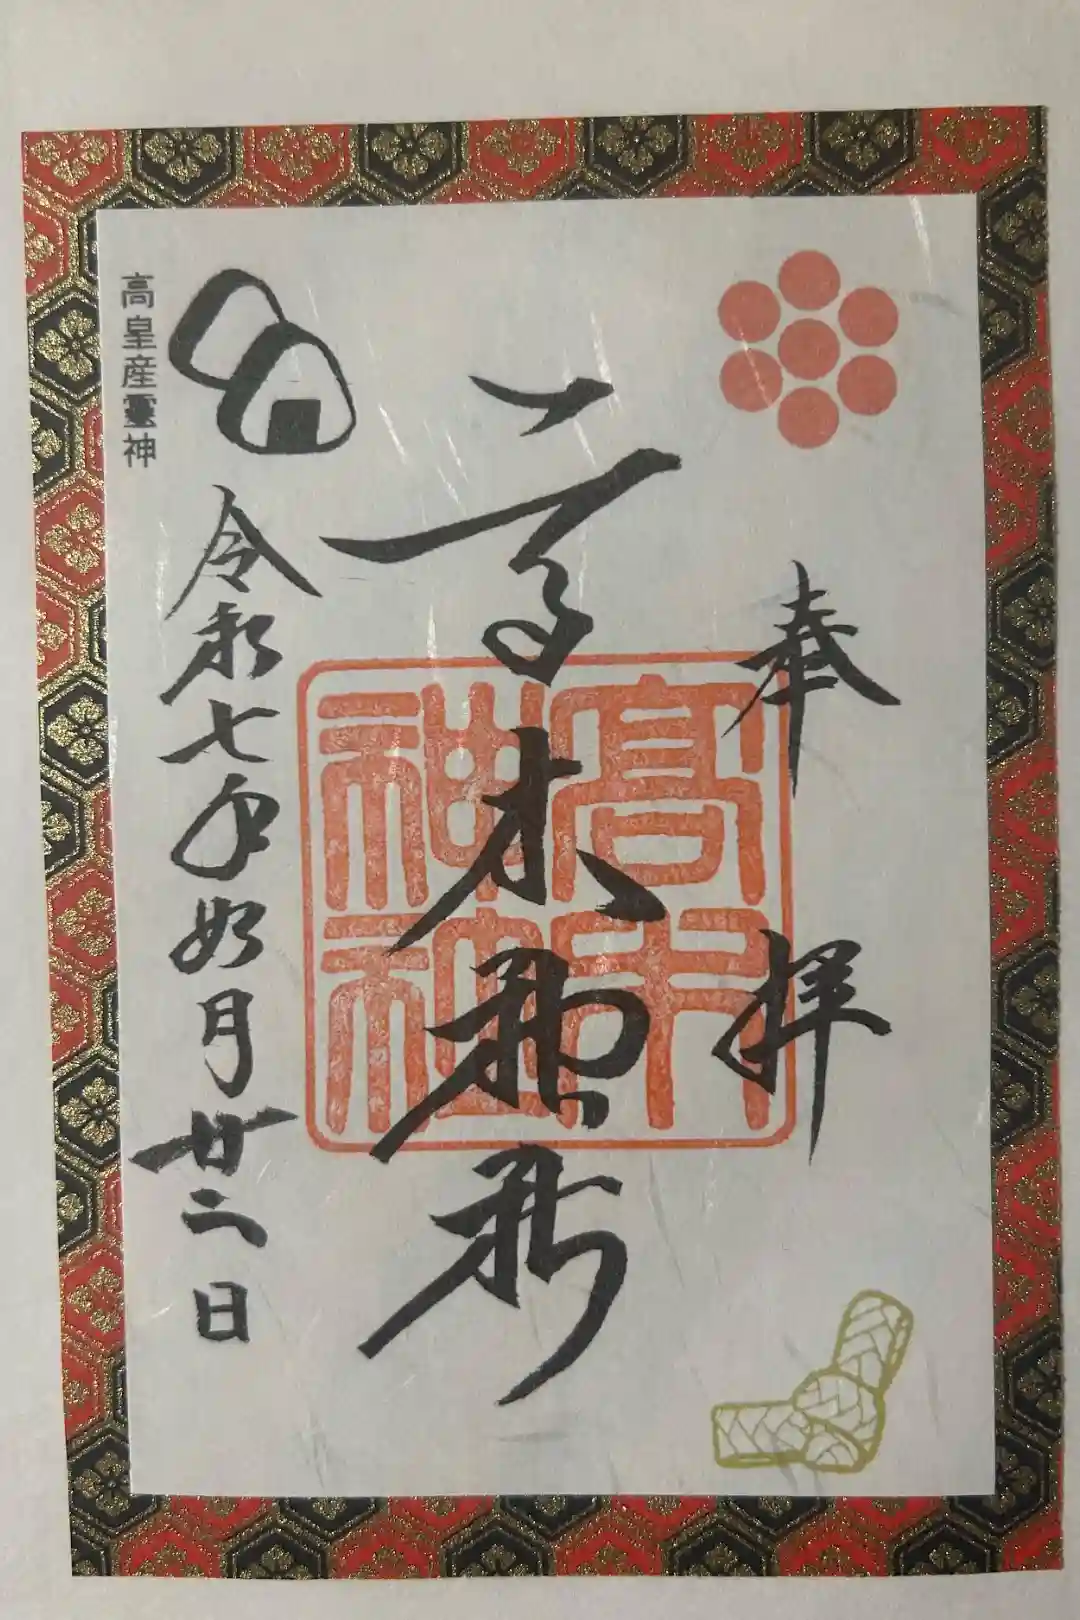 奉拝
高木神社
高木神社
令和七年如月廿二日
高皇産靈神